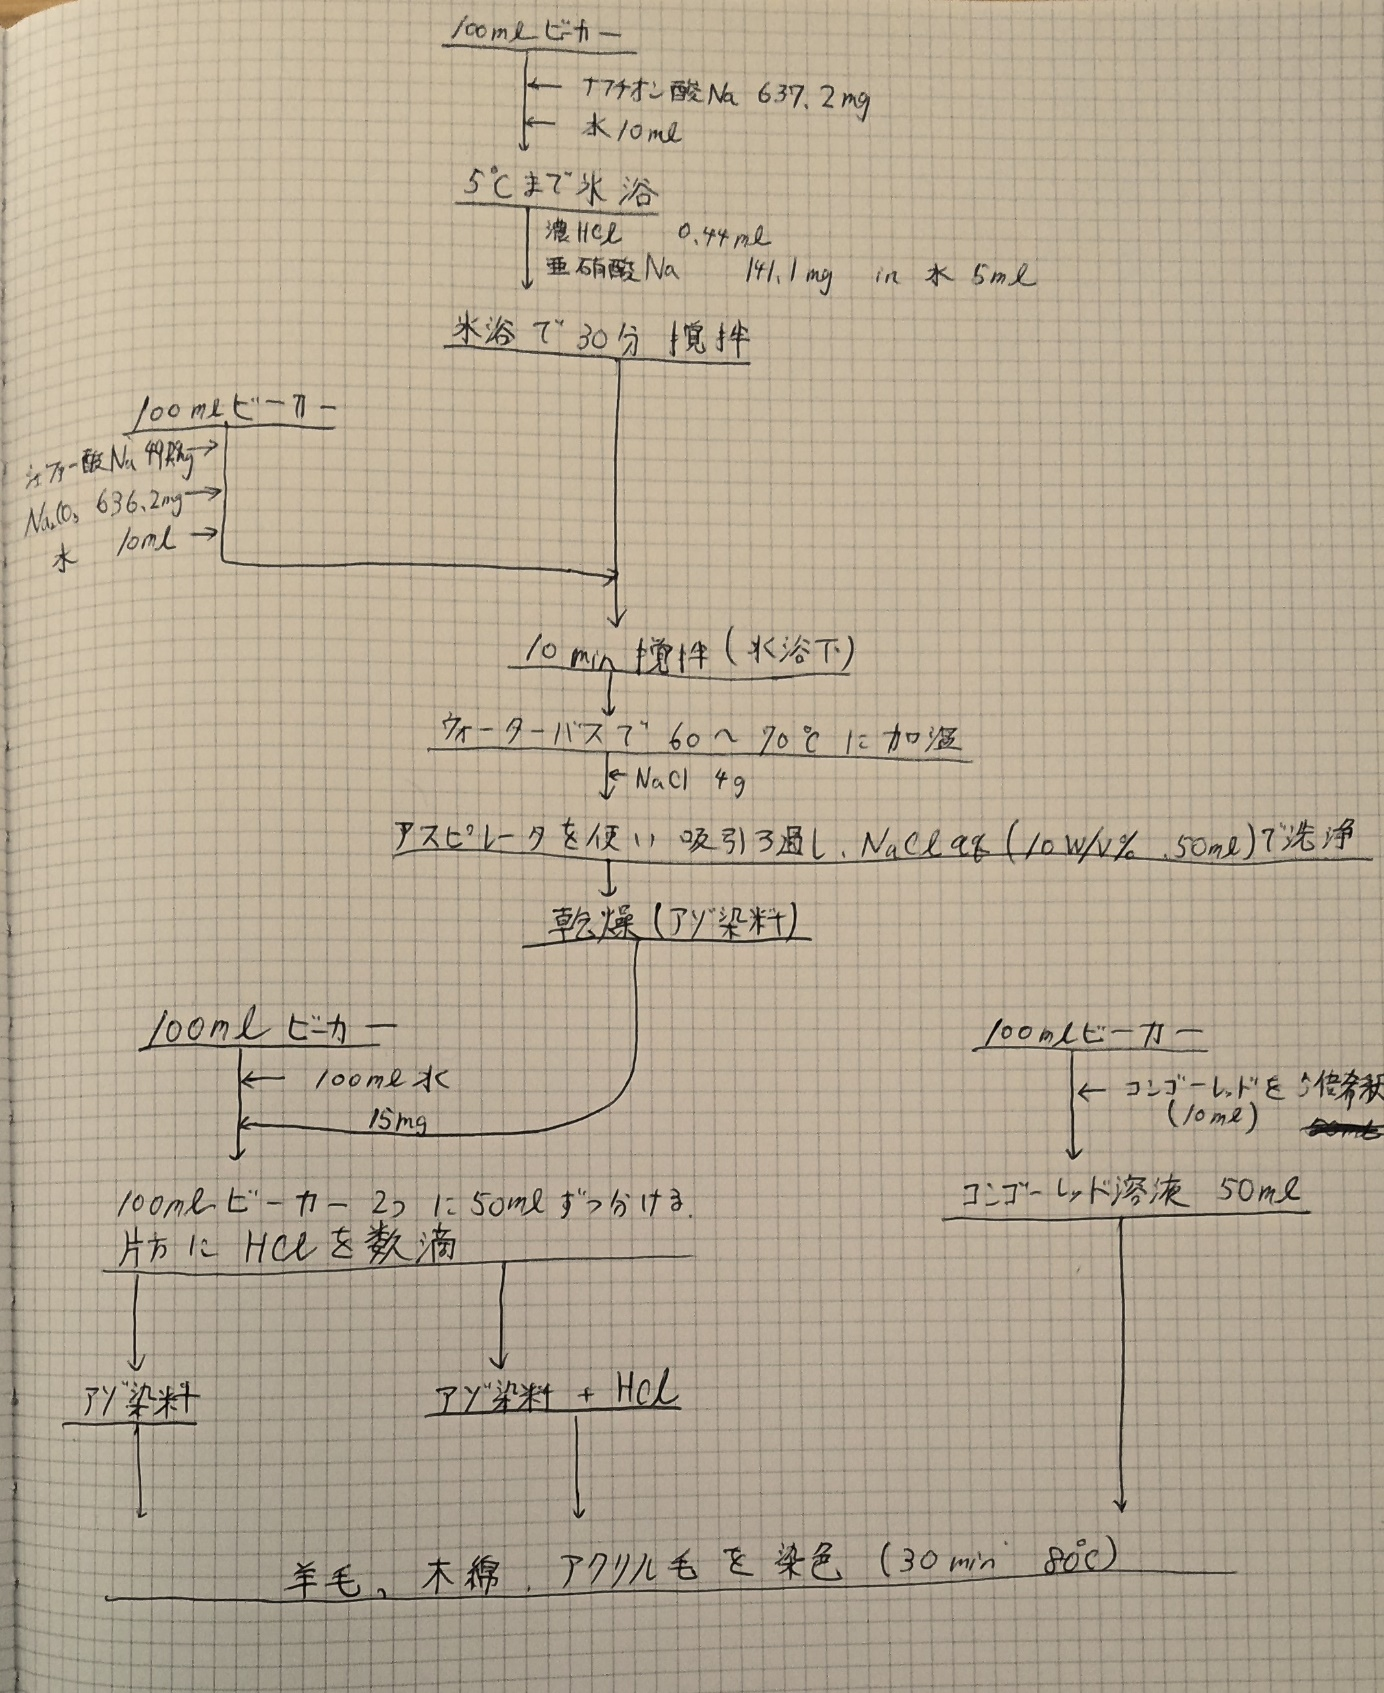 100mlビーカー
ナフチオン酸Na 637.2mg
水10ml
5℃まで氷浴
濃HCl 0.44ml
亜硝酸Na 141.1mg in 水 5ml
氷浴で30分 撹拌
100mlビーカー
シェファー酸Na
Na₂CO₃ 636.2mg
水 10ml
10min 撹拌(氷浴下)
ウォーターバスで 60〜70℃に加温
NaCl 4g
アスピレータを使い 吸引ろ過し、NaCl aq (10 W/V% 、50ml)で洗浄
乾燥(アゾ染料)
100mlビーカー
100ml水
15mg
100mlビーカー 2つに50mlずつ分ける.
片方に HClを数滴
100mlビーカー
コンゴーレッドを 5倍希釈
(10ml)
コンゴーレッド溶液 50ml
アゾ染料
アゾ染料 + HCl
羊毛、木綿、アクリル毛を染色(30min 80℃)